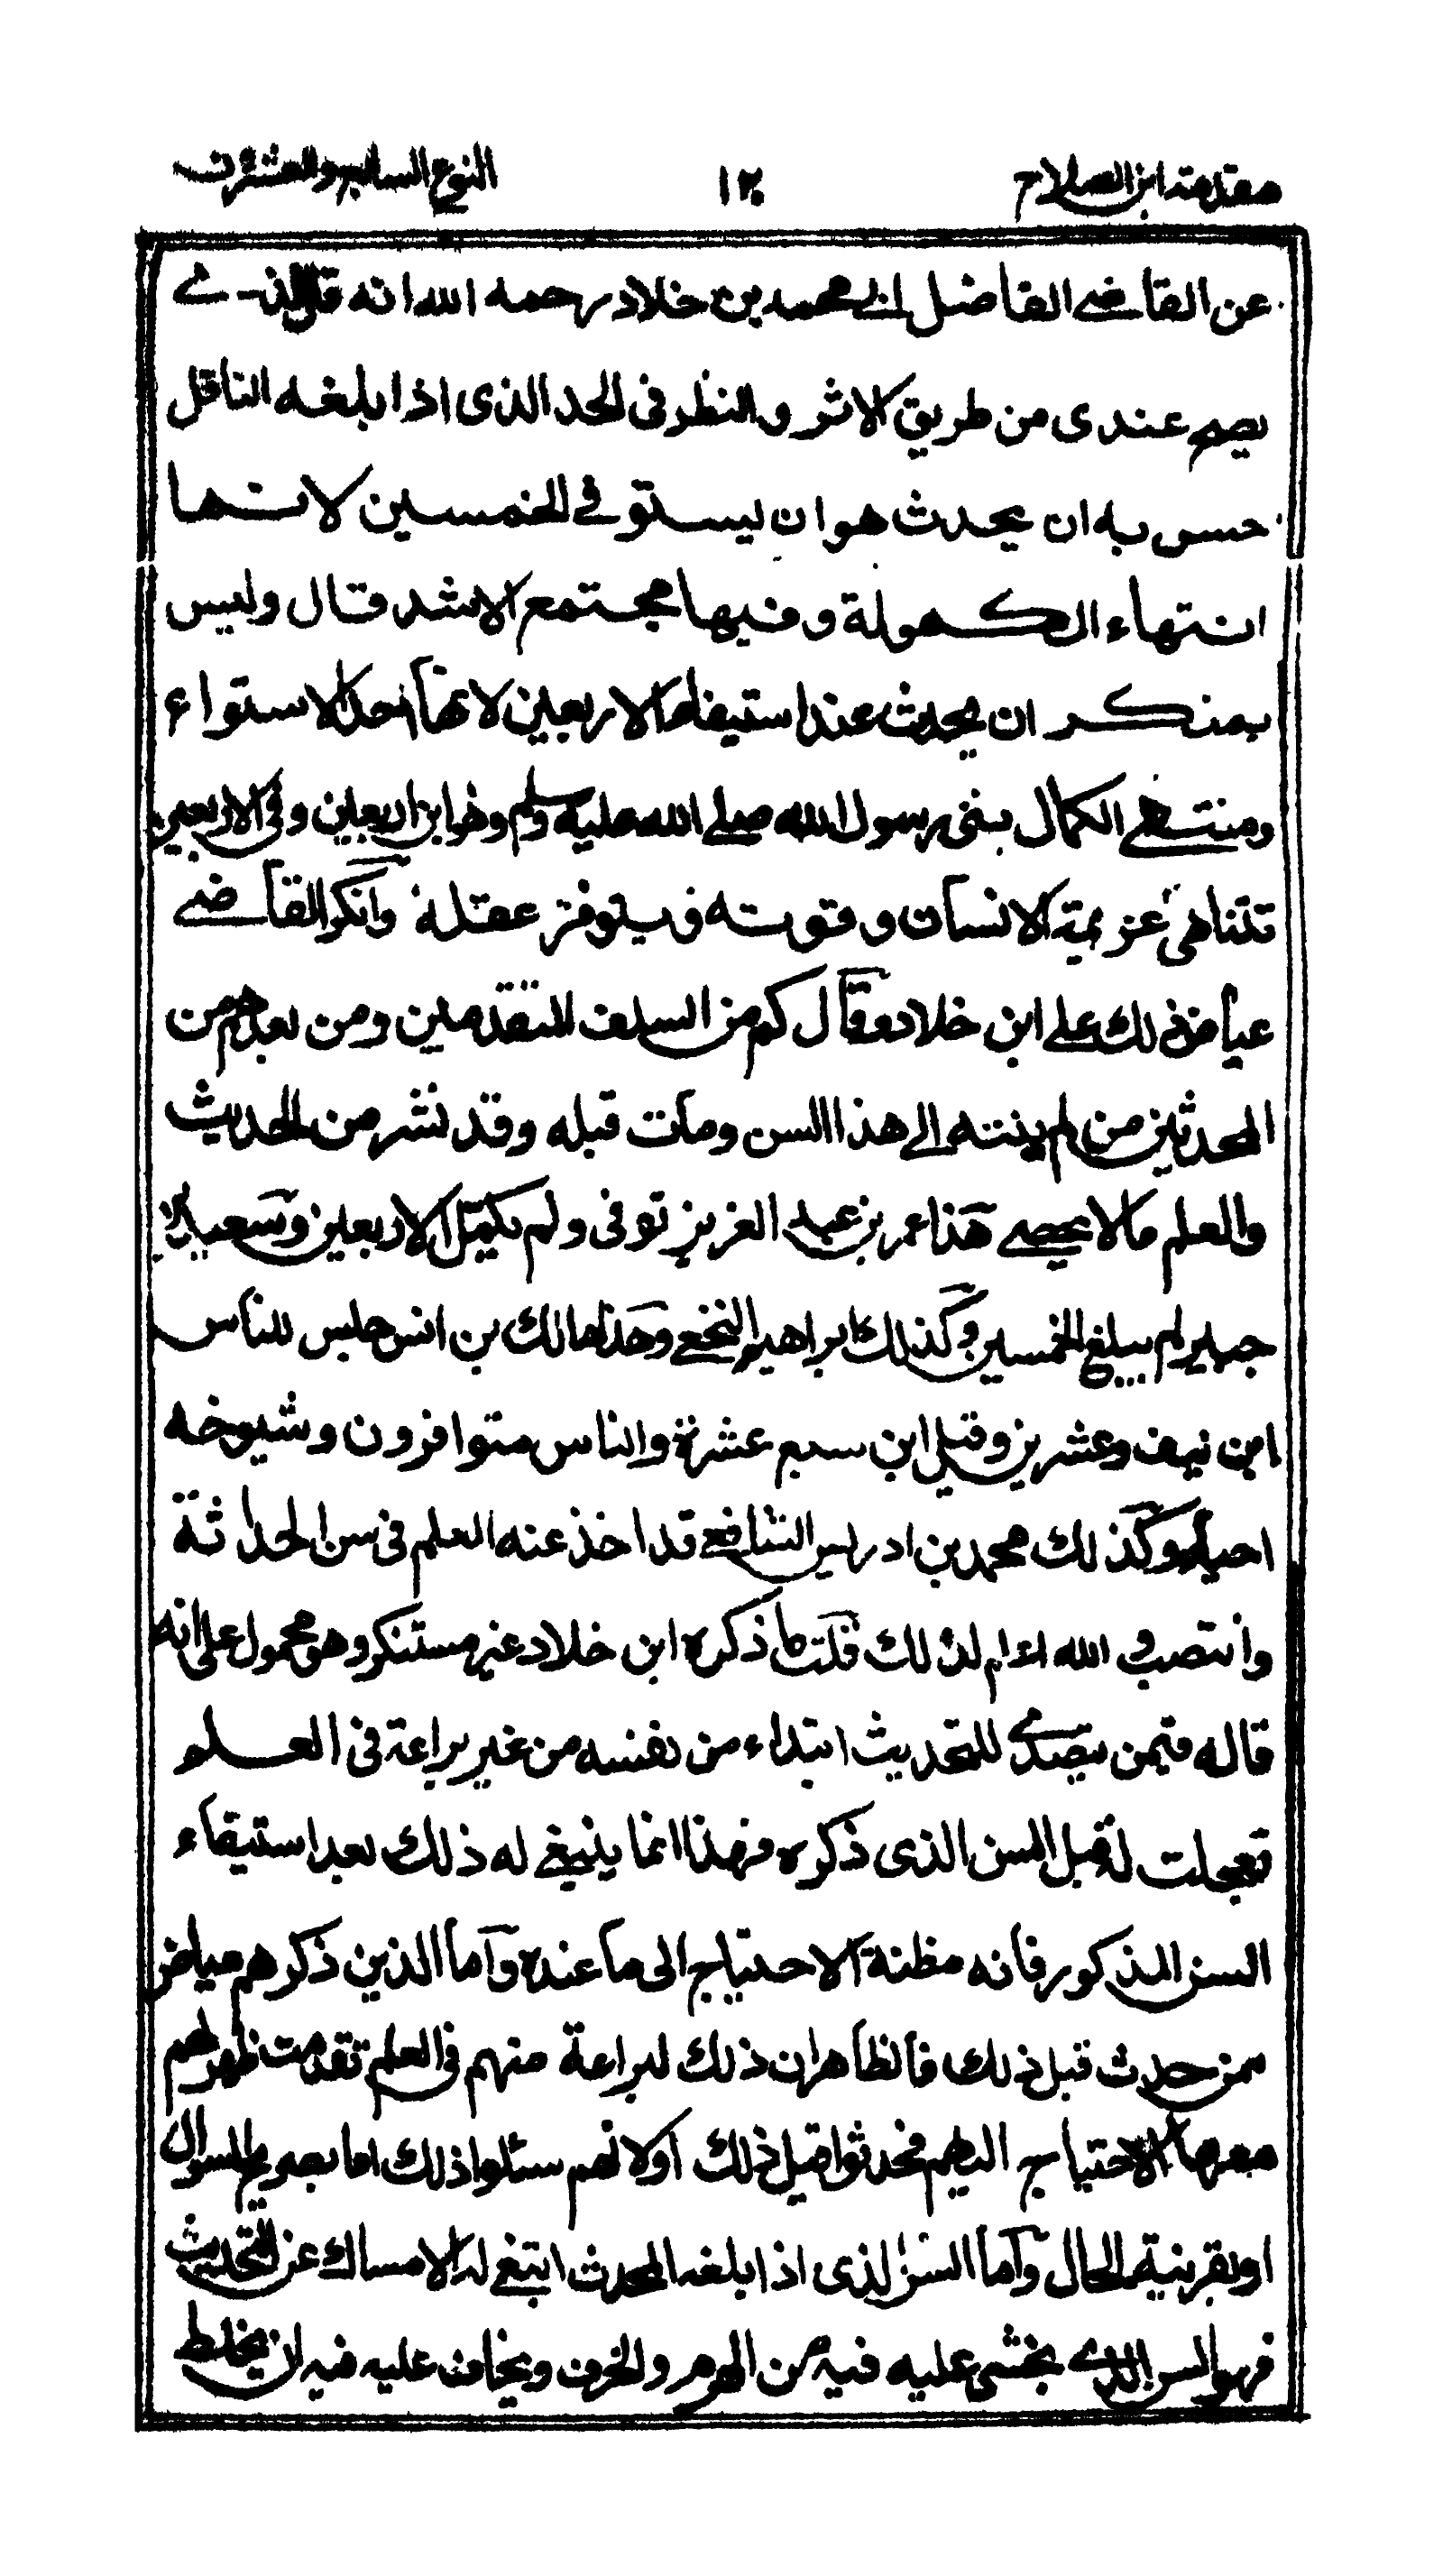 مقدمة ابن الصلاح ١٢٠ النوع السابع والعشرون
عن القاضي الفاضل ابي محمد بن خلاد رحمه الله انه قال الذي
يصح عندى من طريق الاثر والنظر فى الحد الذى اذا بلغه الناقل
حسن به ان يحدث هو ان يستوفي الخمسين لانها
انتهاء الكهولة وفيها مجتمع الاشد قال وليس
بمنكر ان يحدث عند استيفاء الاربعين لانها حد الاستواء
ومنتهي الكمال نبئ رسول الله صلے الله عليه وسلم وهو ابن اربعين وفى الاربعين
تتناهى عزيمة الانسان وقوته ويتوفر عقله وانكر القاضي
عياض ذلك على ابن خلاد وقال كم من السلف المتقدمين ومن بعدهم من
المحدثين من لم ينته الى هذا السن ومات قبله وقد نشر من الحديث
والعلم مالا يحصى هذا عمر بن عبد العزيز توفى ولم يكمل الاربعين وسعيد بن
جبير لم يبلغ الخمسين وكذلك ابراهيم النخعي وهذا مالك بن انس جلس للناس
ابن نيف وعشرين وقيل ابن سبع عشرة والناس متوافرون وشيوخه
احياء وكذلك محمد بن ادريس الشافعي قد اخذ عنه العلم فى سن الحداثة
وانتصب لذلك قلت ما ذكره ابن خلاد غير مستنكر وهو محمول على انه
قاله فيمن يتصدى للتحديث ابتداء من نفسه من غير براعة فى العلم
تعجلت له قبل السن الذى ذكره فهذا انما ينبغي له ذلك بعد استيفاء
السن المذكور فانه مظنة الاحتياج الى ما عنده واما الذين ذكرهم عياض
ممن حدث قبل ذلك فالظاهر ان ذلك لبراعة منهم فى العلم تقدمت ظهر لهم
معها الاحتياج اليهم فحدثوا قبل ذلك اولانهم سئلوا ذلك اما بصريح السوال
او بقرينة الحال واما السن الذى اذا بلغه المحدث انبغي له الامساك عن التحديث
فهو السن الذي يخشى عليه فيه من الهرم والخرف ويخاف عليه فيه ان يخلط